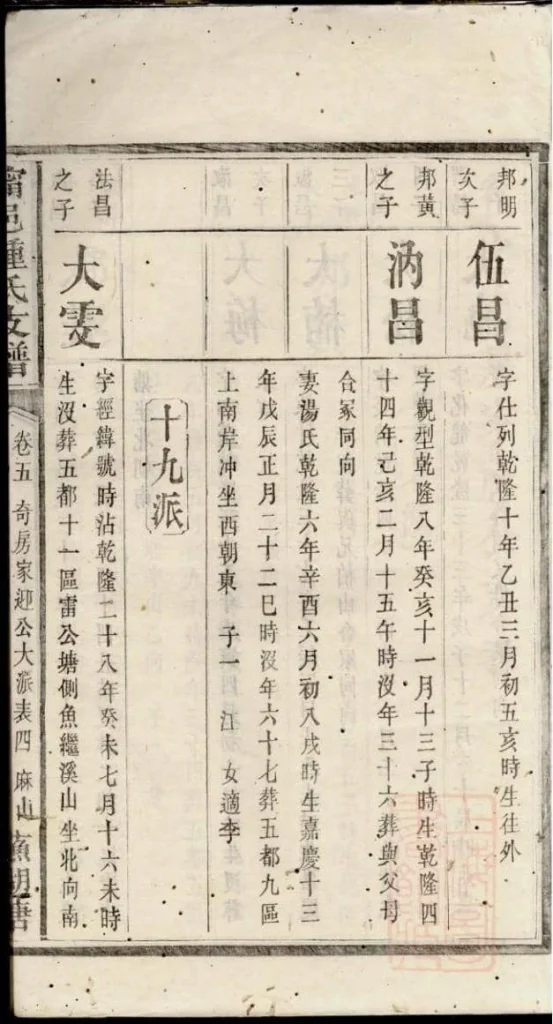 邦明
次子
伍昌
字仕列乾隆十年乙丑三月初五亥時生往外
邦黃
之子
汭昌
字觀型乾隆八年癸亥十一月十三子時生乾隆四
十四年己亥二月十五午時沒年三十六葬與父母
合冢同向
妻湯氏乾隆六年辛酉六月初八戌時生嘉慶十三
年戊辰正月二十二巳時沒年六十七葬五都九區
上南岸冲坐西朝東 子一 江 女適李
十九派
法昌
之子
大雯
字經緯號時沾乾隆二十八年癸未七月十六未時
生沒葬五都十一區雷公塘側魚繼溪山坐北向南
甯邑鍾氏支譜
卷五 奇房家迎公大派表四 麻山